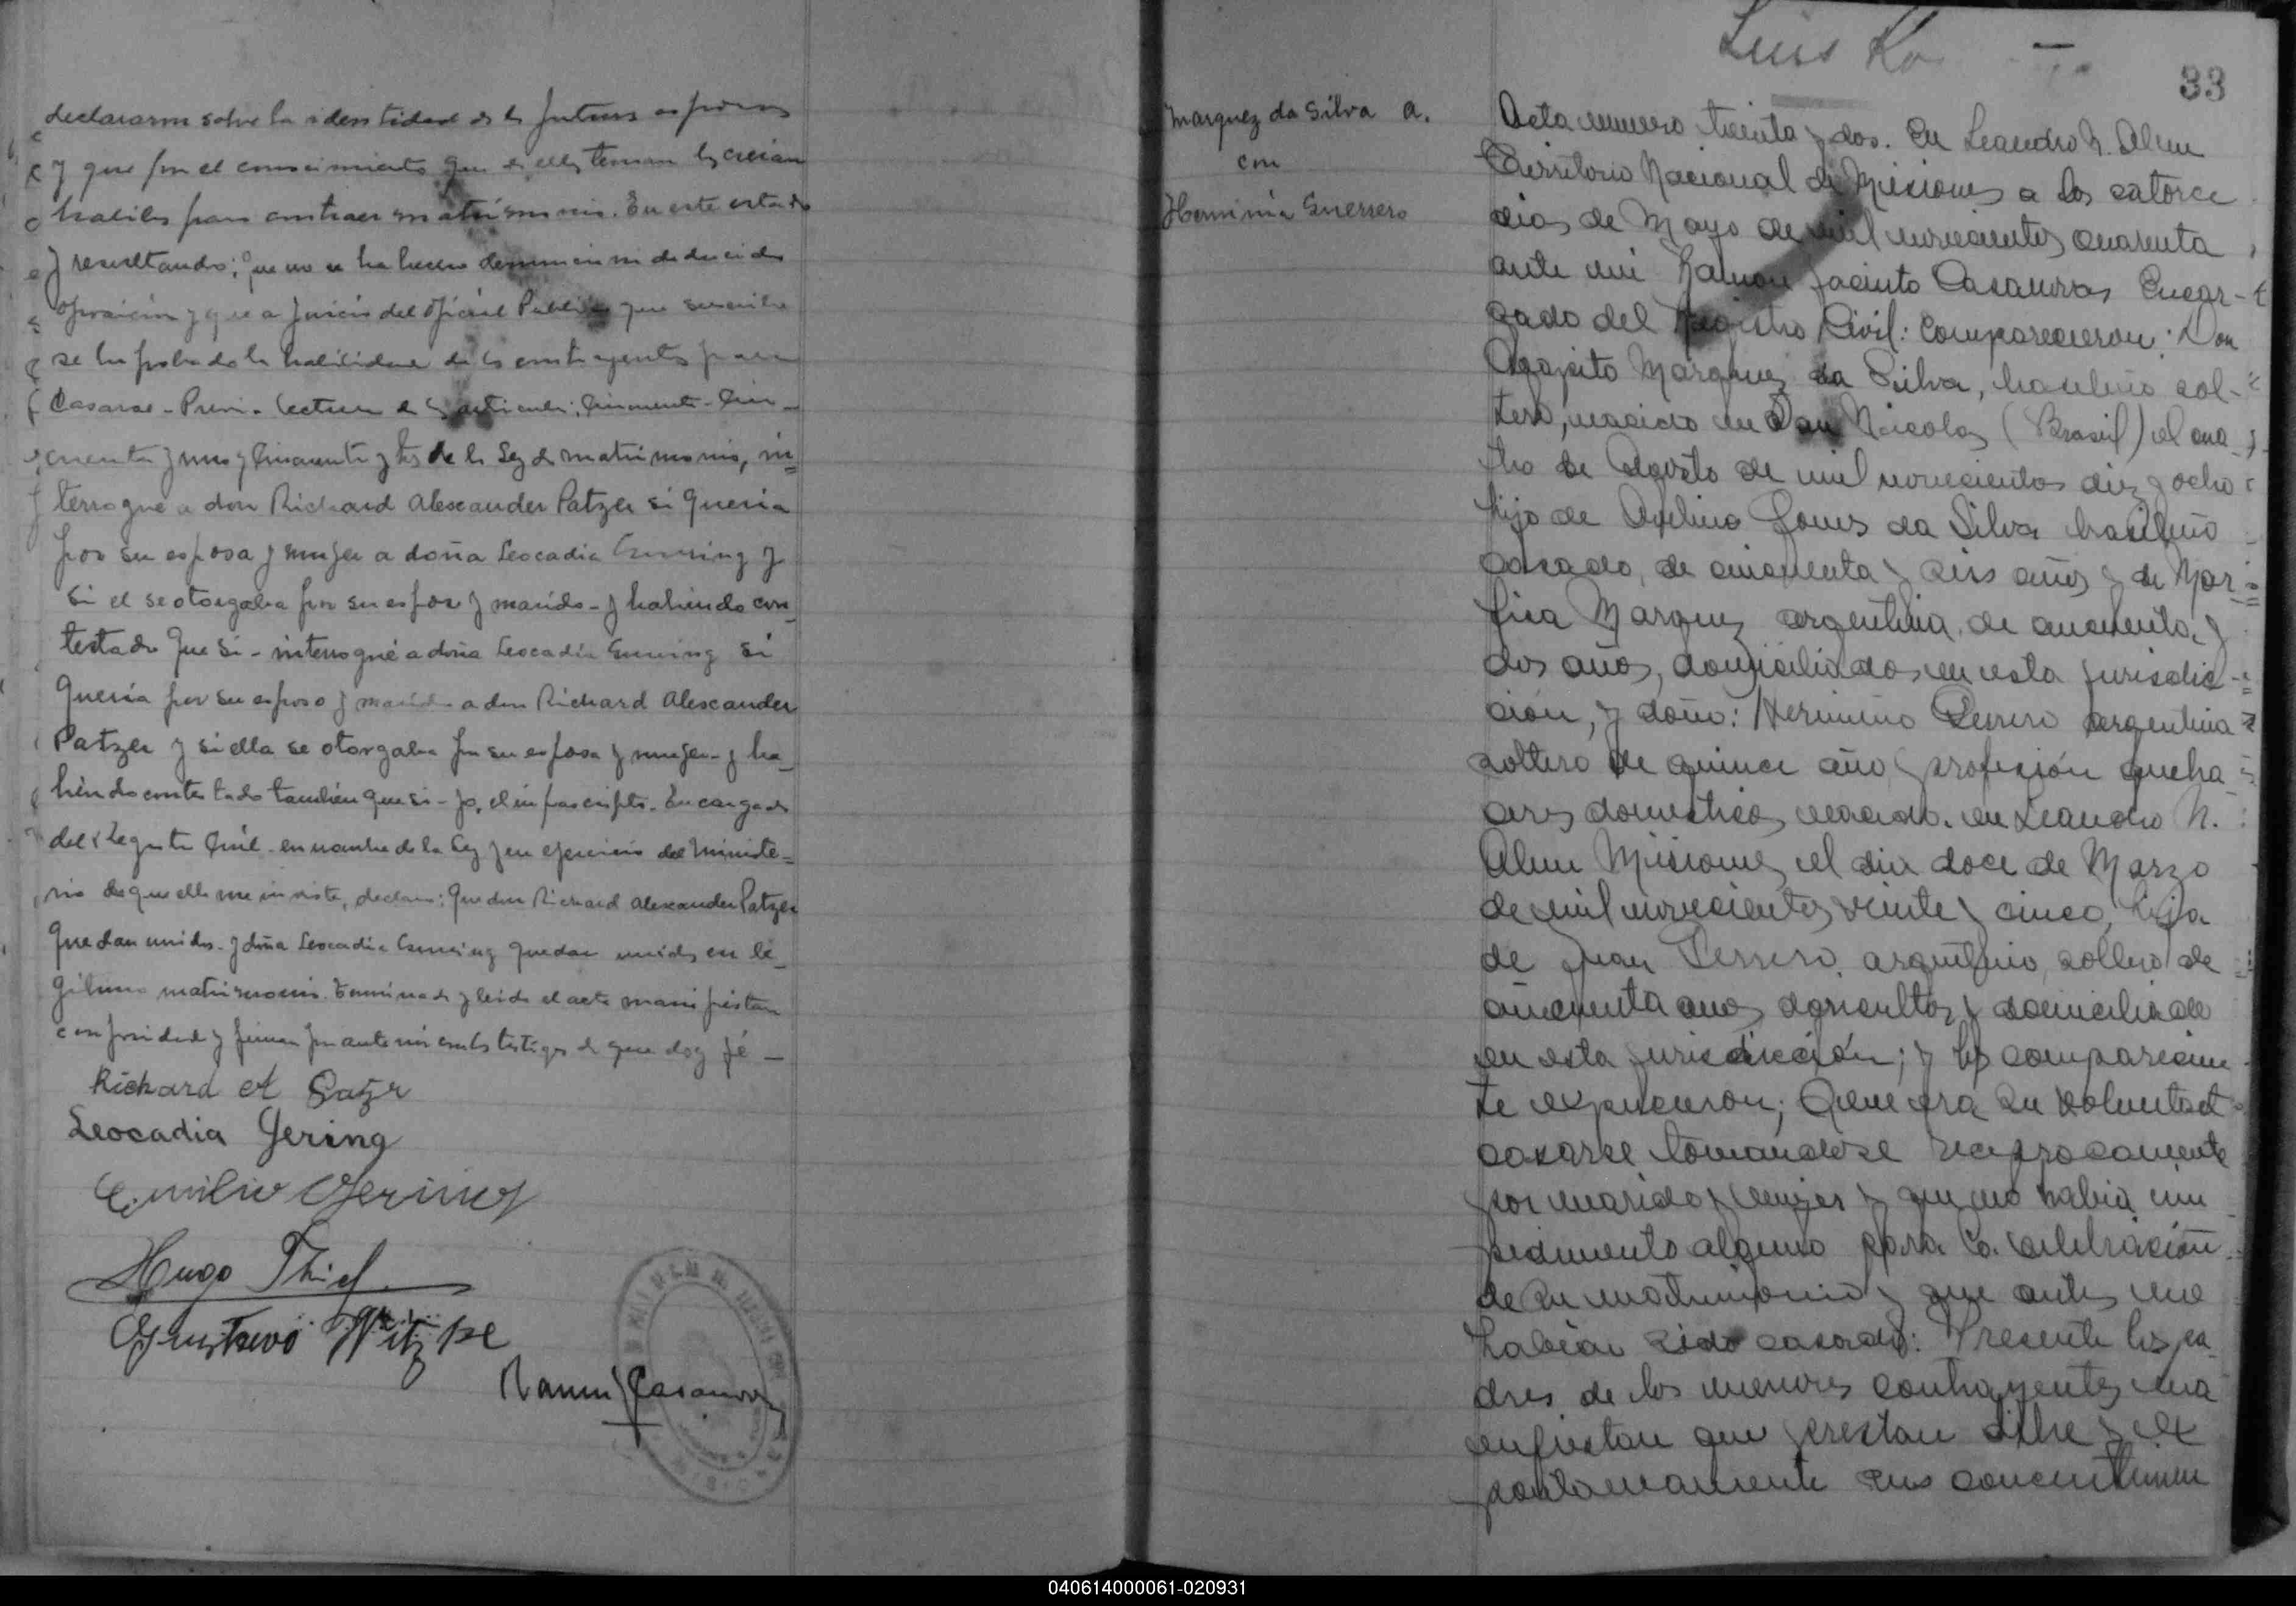 declararon sobre la identidad de los futuros esposos
y que por el conocimiento que de ellos tenian los creian
habiles para contraer matrimonio. En este estado
y resultando; que no se ha hecho denuncia ni deducido
oposición y que a juicio del Oficial Publico que suscribe
se ha probado la habilidad de los contrayentes para
Casarse - Previa lectura de los articulos; Cincuenta - Cin-
cuenta y uno y Cincuenta y tres de la Ley de matrimonio, in=
terrogué a don Richard Alexander Patzer si queria
por su esposa y mujer a doña Leocadia Guering y
si el se otorgaba por su esposo y marido - y habiendo con-
testado que si - interrogué a doña Leocadia Guering si
queria por su esposo y marido a don Richard Alexander
Patzer y si ella se otorgaba por su esposa y mujer - y ha-
biendo contestado tambien que si - yo, el infrascripto. Encargado
del Registro Civil - en nombre de la Ley y en ejercicio del Ministe=
rio de que ella me inviste, declaro: Que don Richard Alexander Patzer
quedan unidos - y doña Leocadia Guering quedan unidos en le-
gitimo matrimonio. Terminado y leido el acta manifiestan
conformidad y firman por ante mi con los testigos de que doy fé -
Richard A Patzer
Leocadia Gering
Emilio Gering
Hugo Thiel
Gustavo Witzke
Ramon J Casanovas
Luis
33
Marquez da Silva A.
con
Herminia Guerrero
Acta numero treinta y dos. En Leandro N. Alem
Territorio Nacional de Misiones a los catorce
dias de Mayo de mil novecientos cuarenta
ante mi Ramon Jacinto Casanovas Encar-
gado del Registro Civil: Comparecieron: Don
Agapito Marquez da Silva, brasileño sol-
tero, nacido en San Nicolas (Brasil) el cua-
tro de Agosto de mil novecientos diez y ocho
hijo de Avelino Gomes da Silva brasileño
casado, de cincuenta y seis años y de Mar-
fica Marquez argentina, de cincuenta y
dos años, domiciliados en esta jurisdic-
ción, y doña: Herminia Guerrero argentina
soltera de quince año profesión queha
ceres domesticos nacida en Leandro N.
Alem Misiones el dia doce de Marzo
de mil novecientos veinte y cinco, hija
de Juan Guerrero, argentino, soltero de
cincuenta anos, agricultor y domiciliado
en esta jurisdicción; y los comparecien
te expucieron; Que era su voluntad
casarse tomandose reciprocamente
por marido y mujer y que no habia im
pedimento alguno para la celebración
de su matrimonio y que antes no
habian sido casados: Presente los pa
dres de los menores contrayentes ma
enfiestan que prestan libre y ex
pontaneamente sus concentimien
040614000061-020931